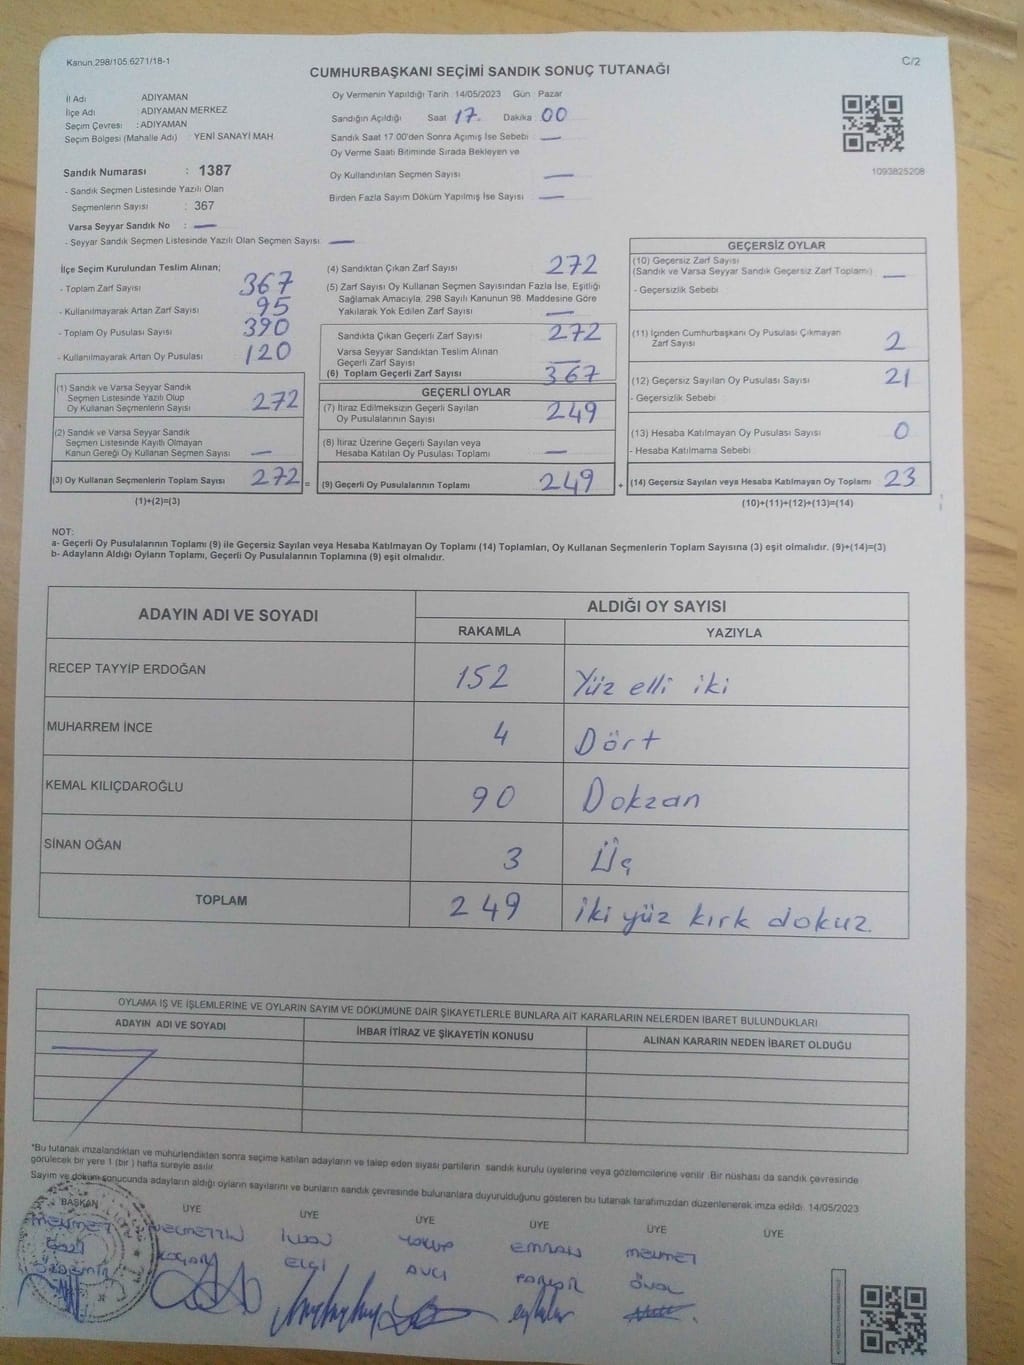 Kanun:298/105.6271/18-1
C/2
CUMHURBAŞKANI SEÇİMİ SANDIK SONUÇ TUTANAĞI
İl Adı ADIYAMAN
İlçe Adı ADIYAMAN MERKEZ
Seçim Çevresi : ADIYAMAN
Seçim Bölgesi (Mahalle Adı) : YENİ SANAYİ MAH
Sandık Numarası : 1387
- Sandık Seçmen Listesinde Yazılı Olan
Seçmenlerin Sayısı : 367
Varsa Seyyar Sandık No : —
- Seyyar Sandık Seçmen Listesinde Yazılı Olan Seçmen Sayısı —
Oy Vermenin Yapıldığı Tarih 14/05/2023 Gün : Pazar
Sandığın Açıldığı Saat 17. Dakika 00
Sandık Saat 17.00'den Sonra Açımış İse Sebebi —
Oy Verme Saati Bitiminde Sırada Bekleyen ve
Oy Kullandırılan Seçmen Sayısı —
Birden Fazla Sayım Döküm Yapılmış İse Sayısı —
1093825208
İlçe Seçim Kurulundan Teslim Alınan;
- Toplam Zarf Sayısı 367
- Kullanılmayarak Artan Zarf Sayısı 95
- Toplam Oy Pusulası Sayısı 390
- Kullanılmayarak Artan Oy Pusulası 120
(1) Sandık ve Varsa Seyyar Sandık
Seçmen Listesinde Yazılı Olup
Oy Kullanan Seçmenlerin Sayısı 272
(2) Sandık ve Varsa Seyyar Sandık
Seçmen Listesinde Kayıtlı Olmayan
Kanun Gereği Oy Kullanan Seçmen Sayısı —
(3) Oy Kullanan Seçmenlerin Toplam Sayısı 272 =
(1)+(2)=(3)
(4) Sandıktan Çıkan Zarf Sayısı 272
(5) Zarf Sayısı Oy Kullanan Seçmen Sayısından Fazla İse, Eşitliği
Sağlamak Amacıyla, 298 Sayılı Kanunun 98. Maddesine Göre
Yakılarak Yok Edilen Zarf Sayısı —
Sandıkta Çıkan Geçerli Zarf Sayısı 272
Varsa Seyyar Sandıktan Teslim Alınan
Geçerli Zarf Sayısı —
(6) Toplam Geçerli Zarf Sayısı 367
GEÇERLİ OYLAR
(7) İtiraz Edilmeksizin Geçerli Sayılan
Oy Pusulalarının Sayısı 249
(8) İtiraz Üzerine Geçerli Sayılan veya
Hesaba Katılan Oy Pusulası Toplamı —
(9) Geçerli Oy Pusulalarının Toplamı 249 +
GEÇERSİZ OYLAR
(10) Geçersiz Zarf Sayısı
(Sandık ve Varsa Seyyar Sandık Geçersiz Zarf Toplamı) —
- Geçersizlik Sebebi
(11) İçinden Cumhurbaşkanı Oy Pusulası Çıkmayan
Zarf Sayısı 2
(12) Geçersiz Sayılan Oy Pusulası Sayısı 21
- Geçersizlik Sebebi
(13) Hesaba Katılmayan Oy Pusulası Sayısı 0
- Hesaba Katılmama Sebebi
(14) Geçersiz Sayılan veya Hesaba Katılmayan Oy Toplamı 23
(10)+(11)+(12)+(13)=(14)
NOT:
a- Geçerli Oy Pusulalarının Toplamı (9) ile Geçersiz Sayılan veya Hesaba Katılmayan Oy Toplamı (14) Toplamları, Oy Kullanan Seçmenlerin Toplam Sayısına (3) eşit olmalıdır. (9)+(14)=(3)
b- Adayların Aldığı Oyların Toplamı, Geçerli Oy Pusulalarının Toplamına (9) eşit olmalıdır.
ADAYIN ADI VE SOYADI
ALDIĞI OY SAYISI
RAKAMLA YAZIYLA
RECEP TAYYİP ERDOĞAN 152 Yüz elli iki
MUHARREM İNCE 4 Dört
KEMAL KILIÇDAROĞLU 90 Dokzan
SİNAN OĞAN 3 Üç
TOPLAM 249 iki yüz kırk dokuz.
OYLAMA İŞ VE İŞLEMLERİNE VE OYLARIN SAYIM VE DÖKÜMÜNE DAİR ŞİKAYETLERLE BUNLARA AİT KARARLARIN NELERDEN İBARET BULUNDUKLARI
ADAYIN ADI VE SOYADI İHBAR İTİRAZ VE ŞİKAYETİN KONUSU ALINAN KARARIN NEDEN İBARET OLDUĞU
*Bu tutanak imzalandıktan ve mühürlendikten sonra seçime katılan adayların ve talep eden siyasi partilerin sandık kurulu üyelerine veya gözlemcilerine verilir. Bir nüshası da sandık çevresinde
görülecek bir yere 1 (bir ) hafta süreyle asılır.
Sayım ve döküm sonucunda adayların aldığı oyların sayılarını ve bunların sandık çevresinde bulunanlara duyurulduğunu gösteren bu tutanak tarafımızdan düzenlenerek imza edildi. 14/05/2023
BAŞKAN ÜYE ÜYE ÜYE ÜYE ÜYE ÜYE
MEHMET NECMETTİN YAKUP EMRAH MEHMET
ÖZDEMİR ELÇİ AVCI ÖVAL